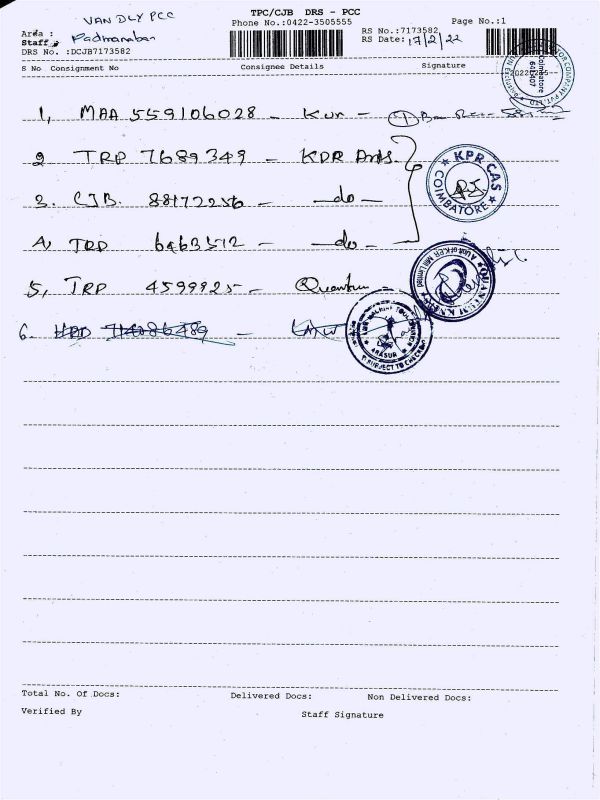 TPC/CJB DRS - PCC
VAN DLY PCC
Phone No.:0422-3505555
Page No.:1
Area :
Staff : Padmanaban
RS No.:7173582
RS Date: 17/2/22
DRS No. :DCJB7173582
S No Consignment No Consignee Details Signature
1, MAA 559106028 -
2 TRP 7689349 - KPR Arts.
3. CJB. 88172256 - -do-
4, TRP 6463512 - -do-
5, TRP 4599925 - Quantum -
6.
KPR CAS
COIMBATORE
QUANTUM KNITS
A unit of KPR Mill Limited
ARASUR
SUBJECT TO CHECKING
Coimbatore
641407
Total No. Of Docs: Delivered Docs: Non Delivered Docs:
Verified By Staff Signature